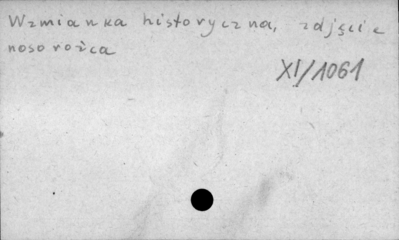 Wzmianka historyczna, zdjęcie
nosorożca
XI/1061